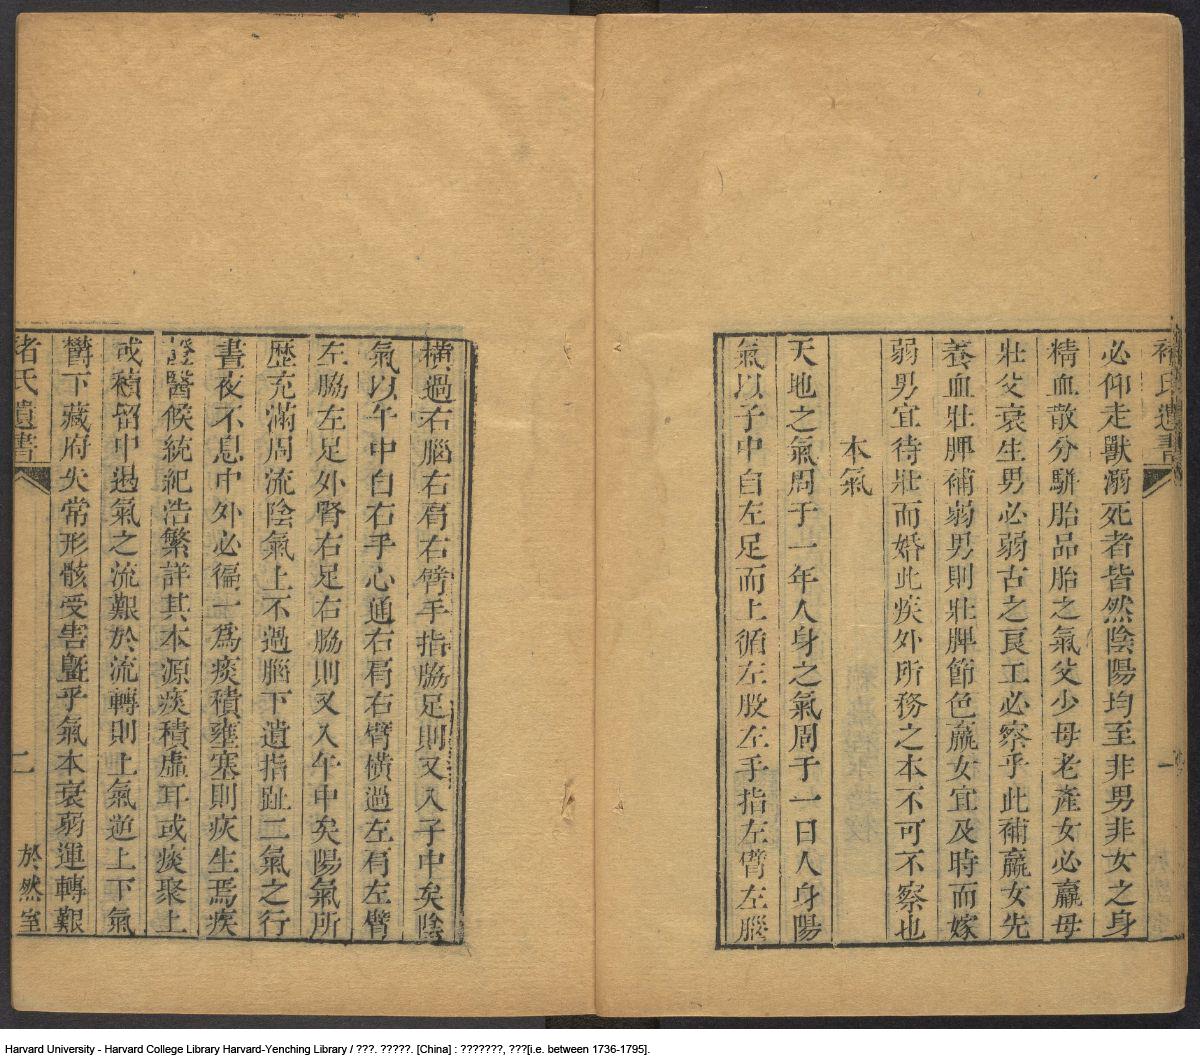 褚氏遺書
必仰走獸溺死者皆然陰陽均至非男非女之身
精血散分駢胎品胎之氣父少母老產女必羸母
壯父衰生男必弱古之良工必察乎此補羸女先
養血壯脾補弱男則壯脾節色羸女宜及時而嫁
弱男宜待壯而婚此疾外所務之本不可不察也
本氣
天地之氣周于一年人身之氣周于一日人身陽
氣以子中自左足而上循左股左手指左臂左腦
橫過右腦右肩右臂手指脇足則又入子中矣陰
氣以午中自右手心通右肩右臂橫過左肩左臂
左脇左足外腎右足右脇則又入午中矣陽氣所
歷充滿周流陰氣上不過腦下遺指趾二氣之行
晝夜不息中外必徧一爲痰積壅塞則疾生焉疾
證醫候統紀浩繁詳其本源痰積虛耳或痰聚上
或積留中遏氣之流艱於流轉則上氣逆上下氣
鬱下藏府失常形骸受害曁乎氣本衰弱運轉艱
褚氏遺書
二
於然室
Harvard University - Harvard College Library Harvard-Yenching Library / ???. ?????. [China] : ???????, ???[i.e. between 1736-1795].